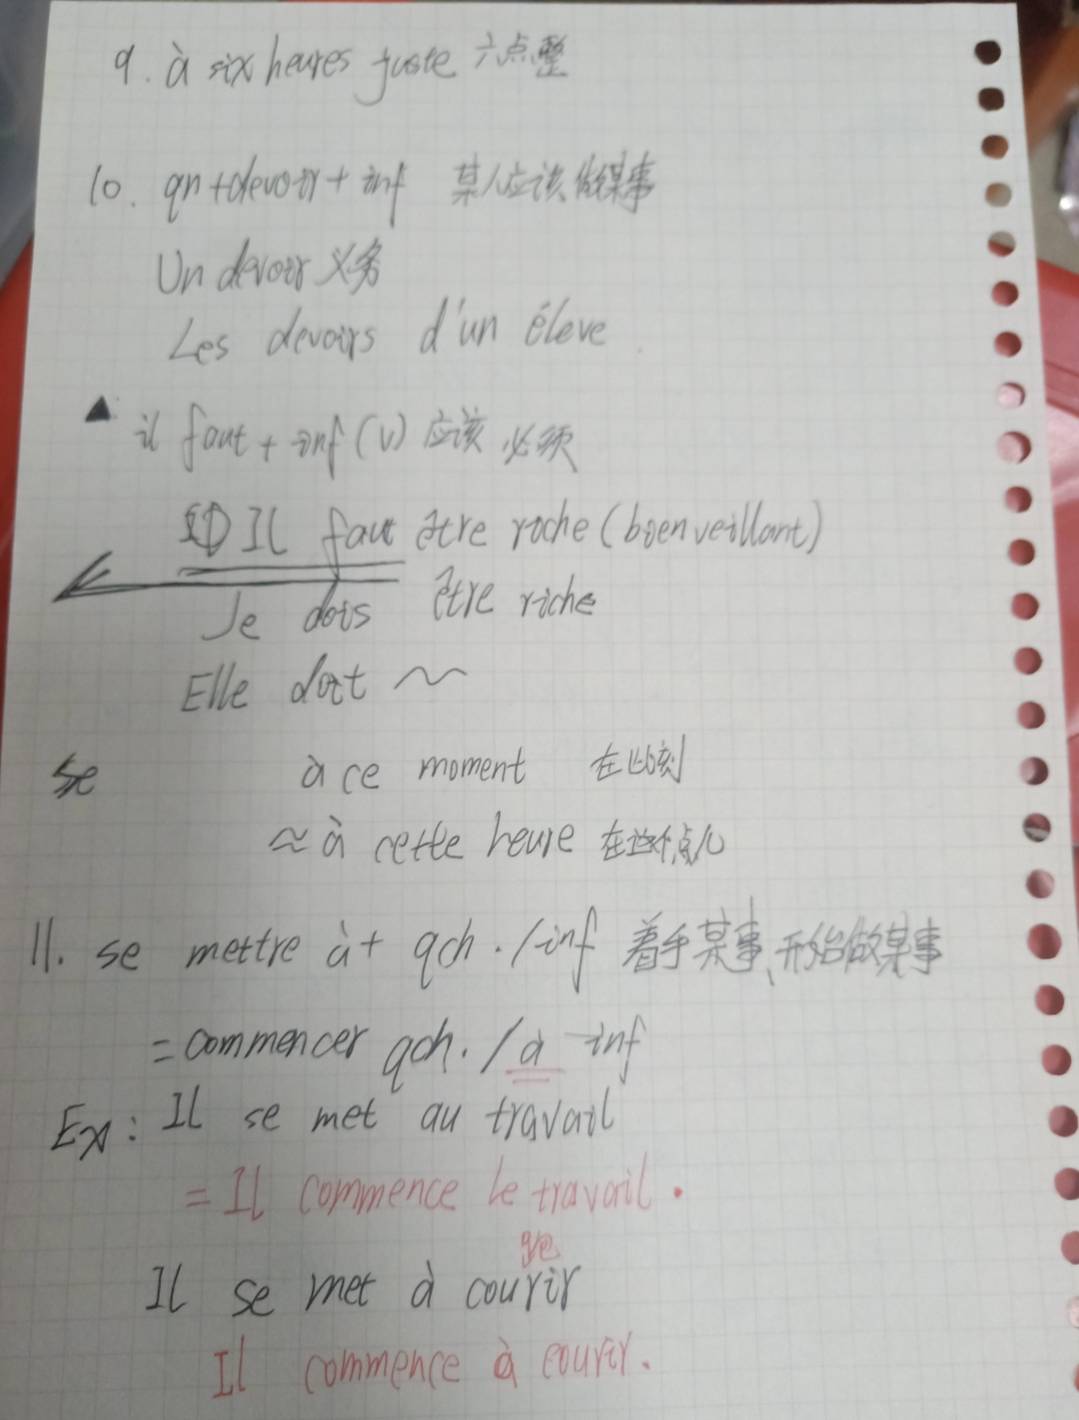 9. à six heures juste 六点整
10. qn+devoir+inf 某人应该做某事
Un devoir 义务
Les devoirs d'un éleve.
▲ il faut + inf (v) 应该 必须
Il faut être riche (bienveillant)
Je dois être riche
Elle doit ~
se à ce moment 在此刻
≈ à cette heure 在这个点儿
11. se mettre à+ qch./inf 着手某事、开始做某事
= commencer qch./à inf
Ex: Il se met au travail
= Il commence le travail.
Il se met à courir
Il commence à courir.